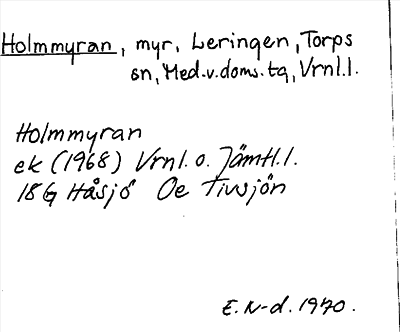 Holmmyran, myr, Leringen, Torps
sn, Med.v.doms.tg, Vrnl.l.
Holmmyran
ek (1968) Vrnl. o. Jämtl.l.
18G Håsjö Oe Tivsjön
E. N-d. 1970.